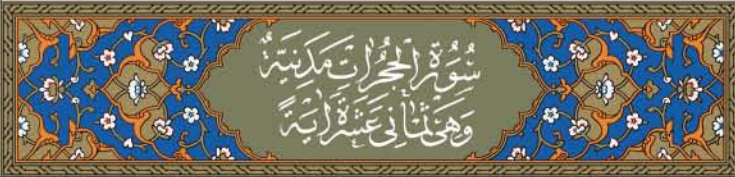 سُورَةُ الْحُجُرَاتِ مَدَنِيَّةٌ
وَهِيَ ثَمَانِي عَشْرَةَ اٰيَةً